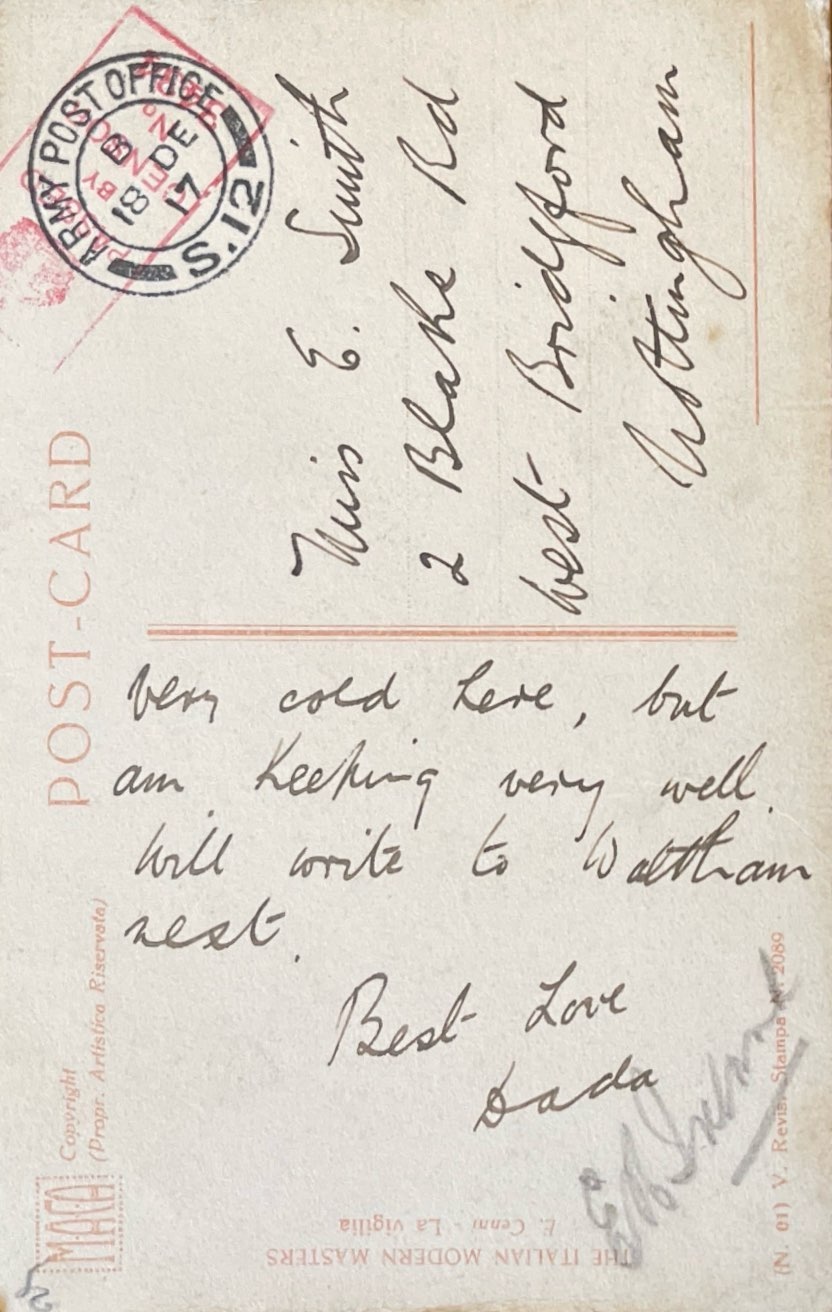 POST-CARD
ARMY POST OFFICE
B
18 DE
17
S.12
PASSED
BY
CENSOR
No
Miss E. Smith
2 Blake Rd
West Bridgford
Nottingham
Very cold here, but
am keeping very well.
Will write to Waltham
next.
Best Love
Dada
MACA
Copyright
(Propr. Artistica Riservata)
THE ITALIAN MODERN MASTERS
E. Cenni - La vigilia
(N. 01) V. Revis. Stampa N. 2089